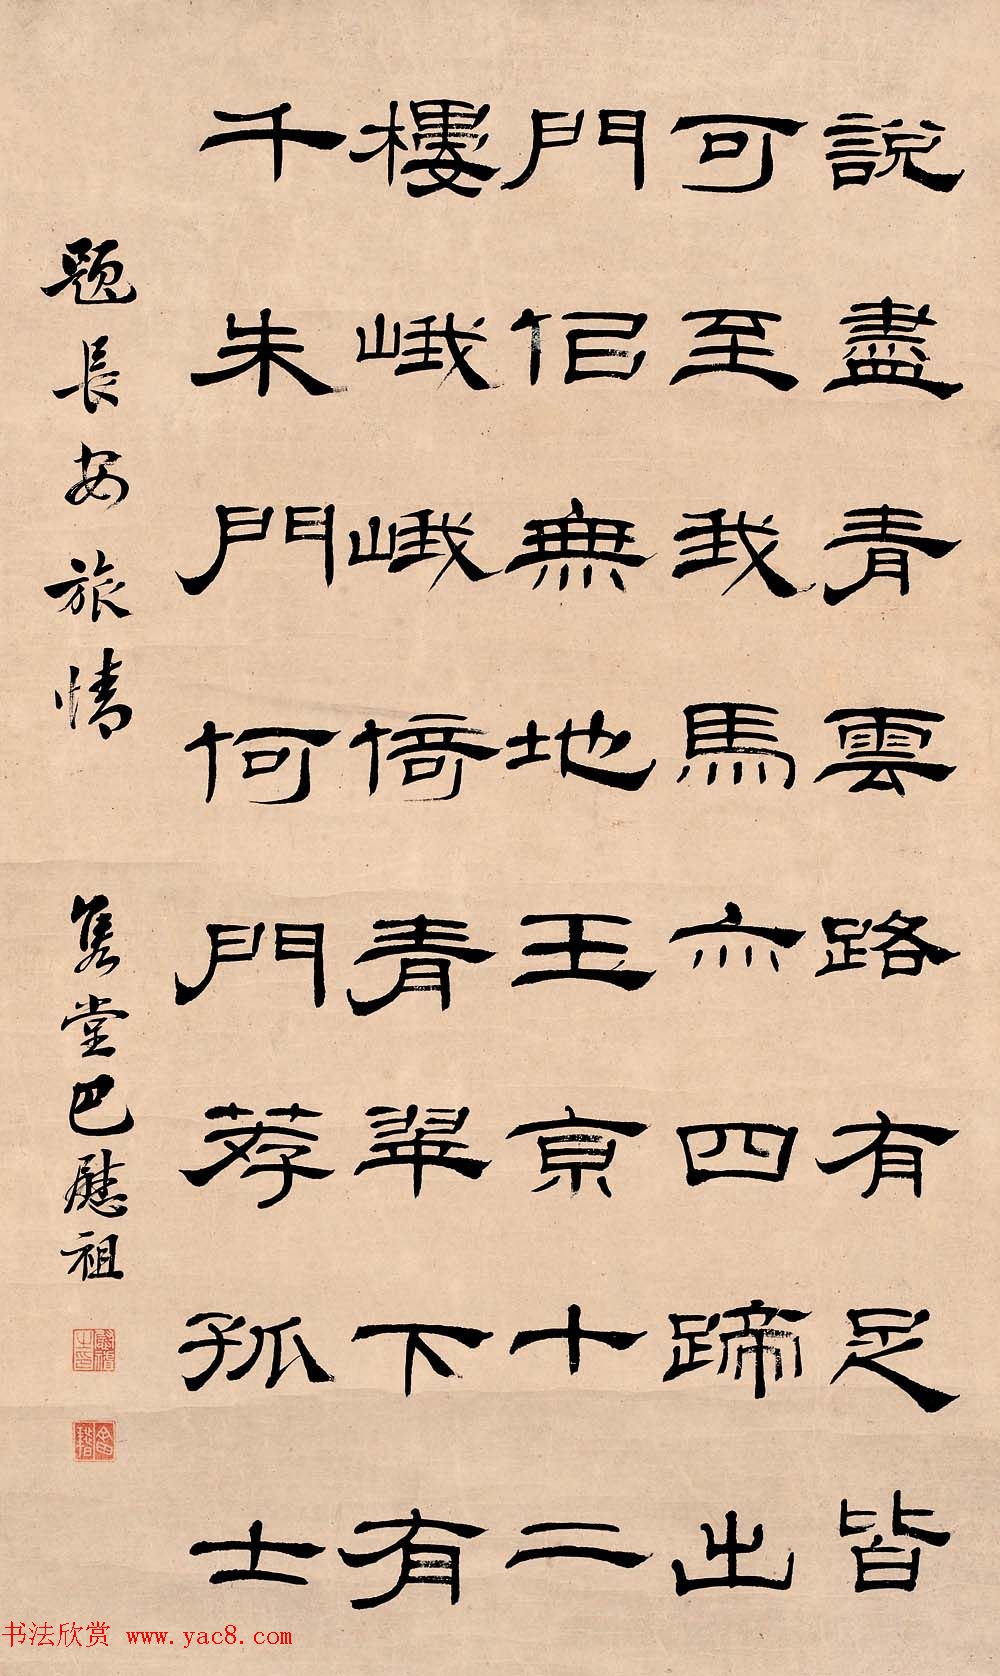 說盡青雲路有足皆
可至我馬亦四蹄出
門似無地玉京十二
樓峨峨倚青翠下有
千朱門何門荐孤士
題長安旅情
雋堂巴慰祖
书法欣赏 www.yac8.com